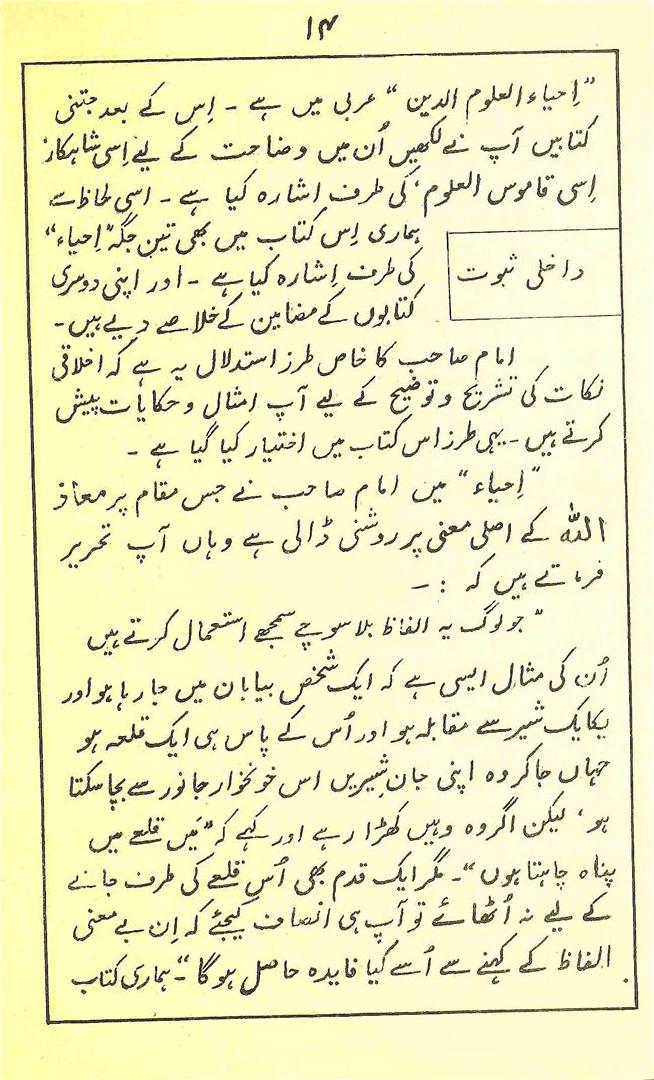 ۱۴
”اِحیاء العلوم الدین“ عربی میں ہے ۔ اِس کے بعد جتنی
کتابیں آپ نے لکھیں اُن میں وضاحت کے لیے اِسی شاہکار،
اِسی قاموس العلوم، کی طرف اشارہ کیا ہے ۔ اسی لحاظ سے
ہماری اِس کتاب میں بھی تین جگہ ”اِحیاء“
داخلی ثبوت
کی طرف اِشارہ کیا ہے ۔ اور اپنی دوسری
کتابوں کے مضامین کے خلاصے دیے ہیں ۔
امام صاحب کا خاص طرز استدلال یہ ہے کہ اخلاقی
نکات کی تشریح و توضیح کے لیے آپ امثال و حکایات پیش
کرتے ہیں ۔ یہی طرز اس کتاب میں اختیار کیا گیا ہے ۔
”اِحیاء“ میں امام صاحب نے جس مقام پر معاذ
اللّٰہ کے اصلی معنی پر روشنی ڈالی ہے وہاں آپ تحریر
فرماتے ہیں کہ : ۔
”جو لوگ یہ الفاظ بلا سوچے سمجھے استعمال کرتے ہیں
اُن کی مثال ایسی ہے کہ ایک شخص بیابان میں جا رہا ہو اور
یکایک شیر سے مقابلہ ہو اور اُس کے پاس ہی ایک قلعہ ہو
جہاں جا کر وہ اپنی جانِ شیریں اس خونخوار جانور سے بچا سکتا
ہو، لیکن اگر وہ وہیں کھڑا رہے اور کہے کہ ”میَں قلعے میں
پناہ چاہتا ہوں“۔ مگر ایک قدم بھی اُس قلعے کی طرف جانے
کے لیے نہ اُٹھائے تو آپ ہی انصاف کیجئے کہ اِن بے معنی
الفاظ کے کہنے سے اُسے کیا فایدہ حاصل ہوگا“۔ ہماری کتاب